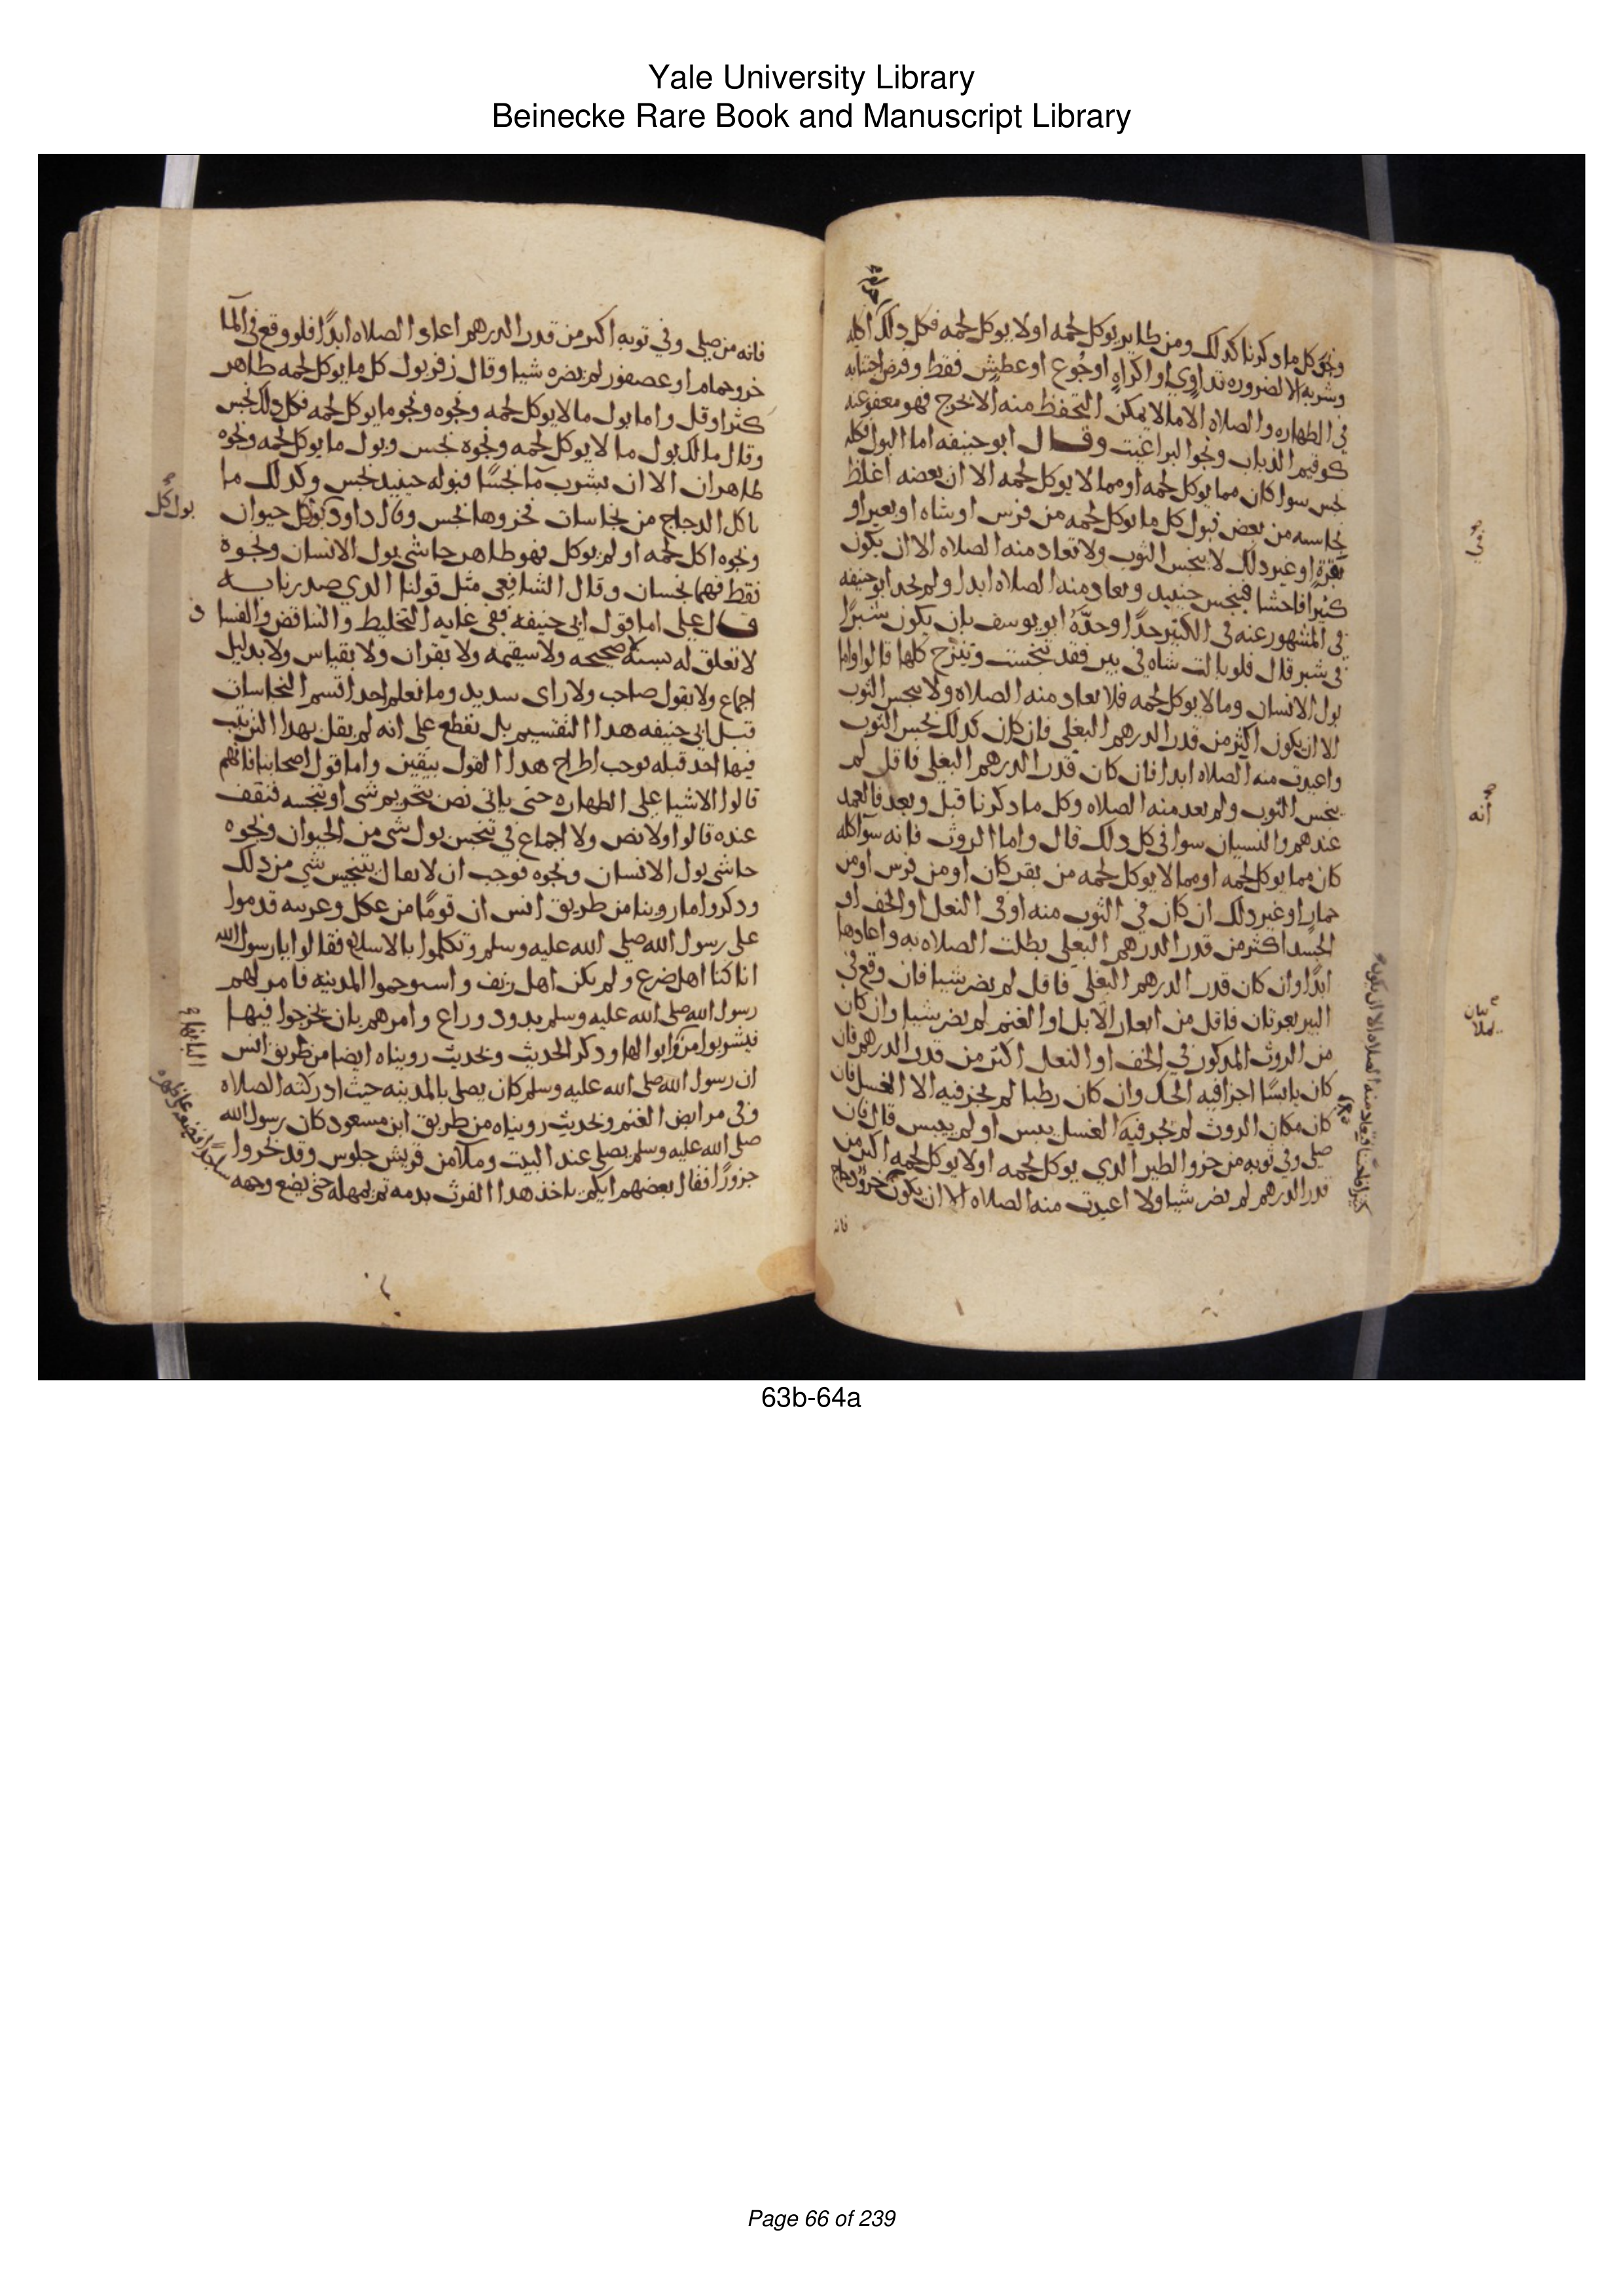 Yale University Library
Beinecke Rare Book and Manuscript Library
ونجو كل ما ذكرنا كذلك ومن طاير يوكل لحمه او لا يوكل لحمه فكل ذلك اكله
وشربه الا لضروره تداوي او اكراه او جوع او عطش فقط وفرض اجتنابه
في الطهاره والصلاه الا ما لا يمكن التحفظ منه الا بحرج فهو معفو عنه
كونيم الذباب ونجو البراغيث وقال ابو حنيفه اما البول فكله
نجس سوا كان مما يوكل لحمه او مما لا يوكل لحمه الا ان بعضه اغلظ
نجاسه من بعض فبول كل ما يوكل لحمه من فرس او شاه او بعير او
بقره او غير ذلك لا ينجس الثوب ولا تعاد منه الصلاه الا ان يكون
كثيرا فاحشا فينجس حينيد وتعاد منه الصلاه ابدا ولم يحد ابو حنيفه
في المشهور عنه في الكثير حدا وحده ابو يوسف بان يكون شبرا
في شبر قال فلو بالت شاه في بير فقد تنجست وتنزح كلها قالوا واما
بول الانسان وما لا يوكل لحمه فلا تعاد منه الصلاه ولا ينجس الثوب
الا ان يكون اكثر من قدر الدرهم البغلي فان كان كذلك نجس الثوب
واعيدت منه الصلاه ابدا فان كان قدر الدرهم البغلي فاقل لم
ينجس الثوب ولم تعد منه الصلاه وكل ما ذكرنا قبل وبعد فالعمد
عندهم والنسيان سوا في كل ذلك قال واما الروث فانه سوا كله
كان مما يوكل لحمه او مما لا يوكل لحمه من بقر كان او من فرس او من
حمار او غير ذلك ان كان في الثوب منه او في النعل او الخف او
الجسد اكثر من قدر الدرهم البغلي بطلت الصلاه به واعادها
ابدا وان كان قدر الدرهم البغلي فاقل لم يضر شيا فان وقع في
البير بعرتان فاقل من ابعار الابل او الغنم لم يضر شيا وان كان
من الروث المذكور في الخف او النعل اكثر من قدر الدرهم فان
كان يابسا اجزا فيه الحك وان كان رطبا لم يجز فيه الا الغسل فان
كان مكان الروث لم يجز فيه الغسل يبس او لم ييبس قال فان
صلى وفي ثوبه من خرو الطير الذي يوكل لحمه او لا يوكل لحمه اكثر من
قدر الدرهم لم يضر شيا ولا اعيدت منه الصلاه الا ان يكون خرو دجاج
فانه
في
انه
فانه من صلى وفي ثوبه اكثر من قدر الدرهم اعاد الصلاه ابدا فلو وقع في الما
خرو حمام او عصفور لم يضره شيا وقال زفر بول كل ما يوكل لحمه طاهر
كثر او قل واما بول ما لا يوكل لحمه ونجوه ونجو ما يوكل لحمه فكل ذلك نجس
وقال مالك بول ما لا يوكل لحمه ونجوه نجس وبول ما يوكل لحمه ونجوه
طاهران الا ان يشرب ما نجسا فبوله حينيد نجس وكذلك ما
ياكل الدجاج من نجاسات فخروها نجس وقال داود بول كل حيوان
ونجوه اكل لحمه او لم يوكل فهو طاهر حاشى بول الانسان ونجوه
فقط فهما نجسان وقال الشافعي مثل قولنا الذي صدرنا به
قال علي اما قول ابي حنيفه ففي غايه التخليط والتناقض والفسا د
لا تعلق له بسنه لا صحيحه ولا سقيمه ولا بقران ولا بقياس ولا بدليل
اجماع ولا بقول صاحب ولا راى سديد وما نعلم احدا قسم النجاسات
قبل ابي حنيفه هذا التقسيم بل نقطع على انه لم يقل بهذا الترتيب
فيها احد قبله فوجب اطراح هذا القول بيقين واما قول اصحابنا فانهم
قالوا الاشيا على الطهاره حتى ياتي نص بتحريم شي او تنجيسه فنقف
عنده قالوا ولا نص ولا اجماع في تنجيس بول شي من الحيوان ونجوه
حاشى بول الانسان ونجوه فوجب ان لا يقال بتنجيس شي من ذلك
وذكروا ما روينا من طريق انس ان قوما من عكل وعرينه قدموا
على رسول الله صلى الله عليه وسلم وتكلموا بالاسلام فقالوا يا رسول الله
انا كنا اهل ضرع ولم نكن اهل ريف واستوخموا المدينه فامر لهم
رسول الله صلى الله عليه وسلم بذود وراع وامرهم بان يخرجوا فيها
فيشربوا من وابوالها وذكر الحديث وبحديث رويناه ايضا من طريق انس
ان رسول الله صلى الله عليه وسلم كان يصلي بالمدينه حيث ادركته الصلاه
وفي مرابض الغنم وبحديث رويناه من طريق ابن مسعود كان رسول الله
صلى الله عليه وسلم يصلي عند البيت وملا من قريش جلوس وقد نحروا
جزورا فقال بعضهم ايكم ياخذ هذا الفرث بدمه ثم يمهله حتى يضع وجهه
بول كل
البانها و
63b-64a
Page 66 of 239